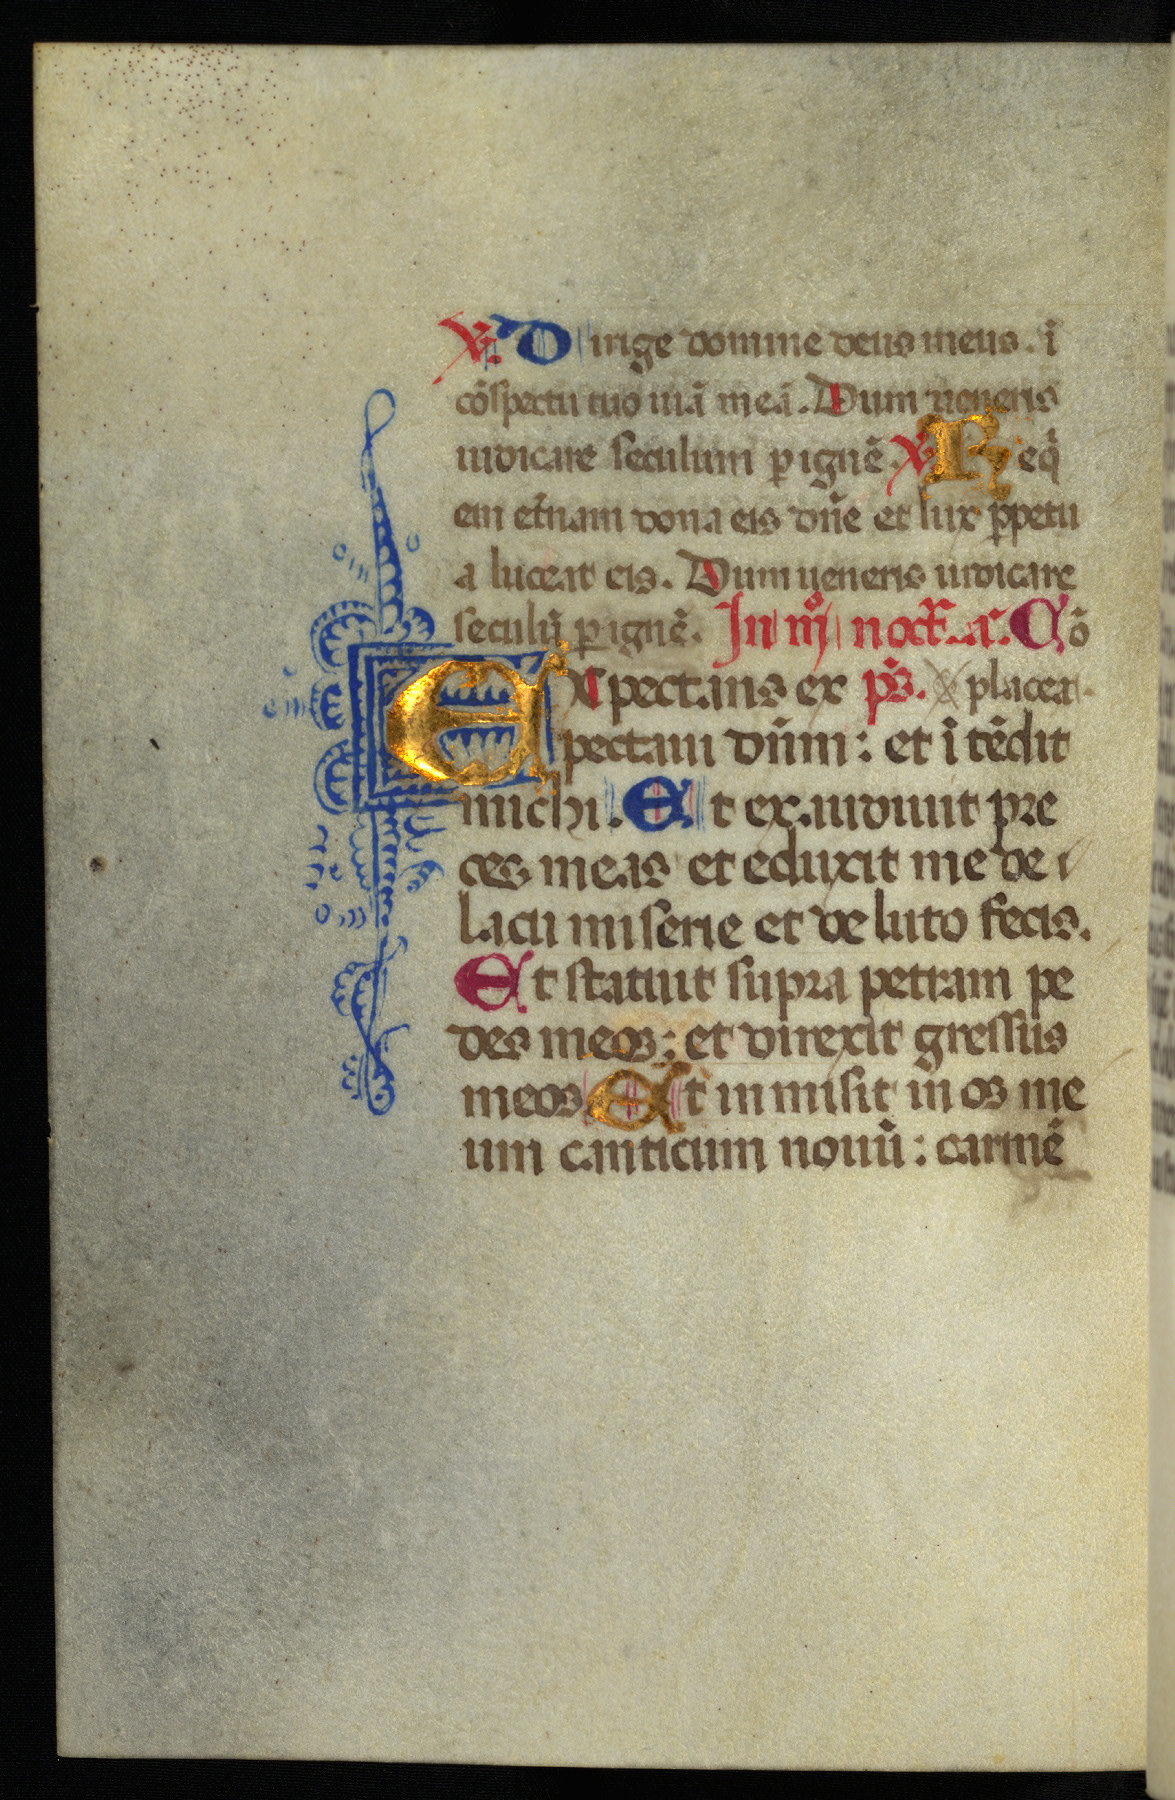 V. Dirige domine deus meus. ī
cōspectu tuo uiā meā. Dum ueneris
iudicare seculum per ignē. V. Req̄
em et̄nam dona eis dn̄e et lux ꝑpetu
a luceat eis. Dum ueneris iudicare
seculū per ignē. In iij noct. a. Cō
Expectans ex ps. placeat.
pectaui dn̄m: et ītēdit
michi. Et exaudiuit pre
ces meas et eduxit me de
lacu miserie et de luto fecis.
Et statuit supra petram pe
des meos: et direxit gressus
meos Et inmisit in os me
um canticum nouū: carmē